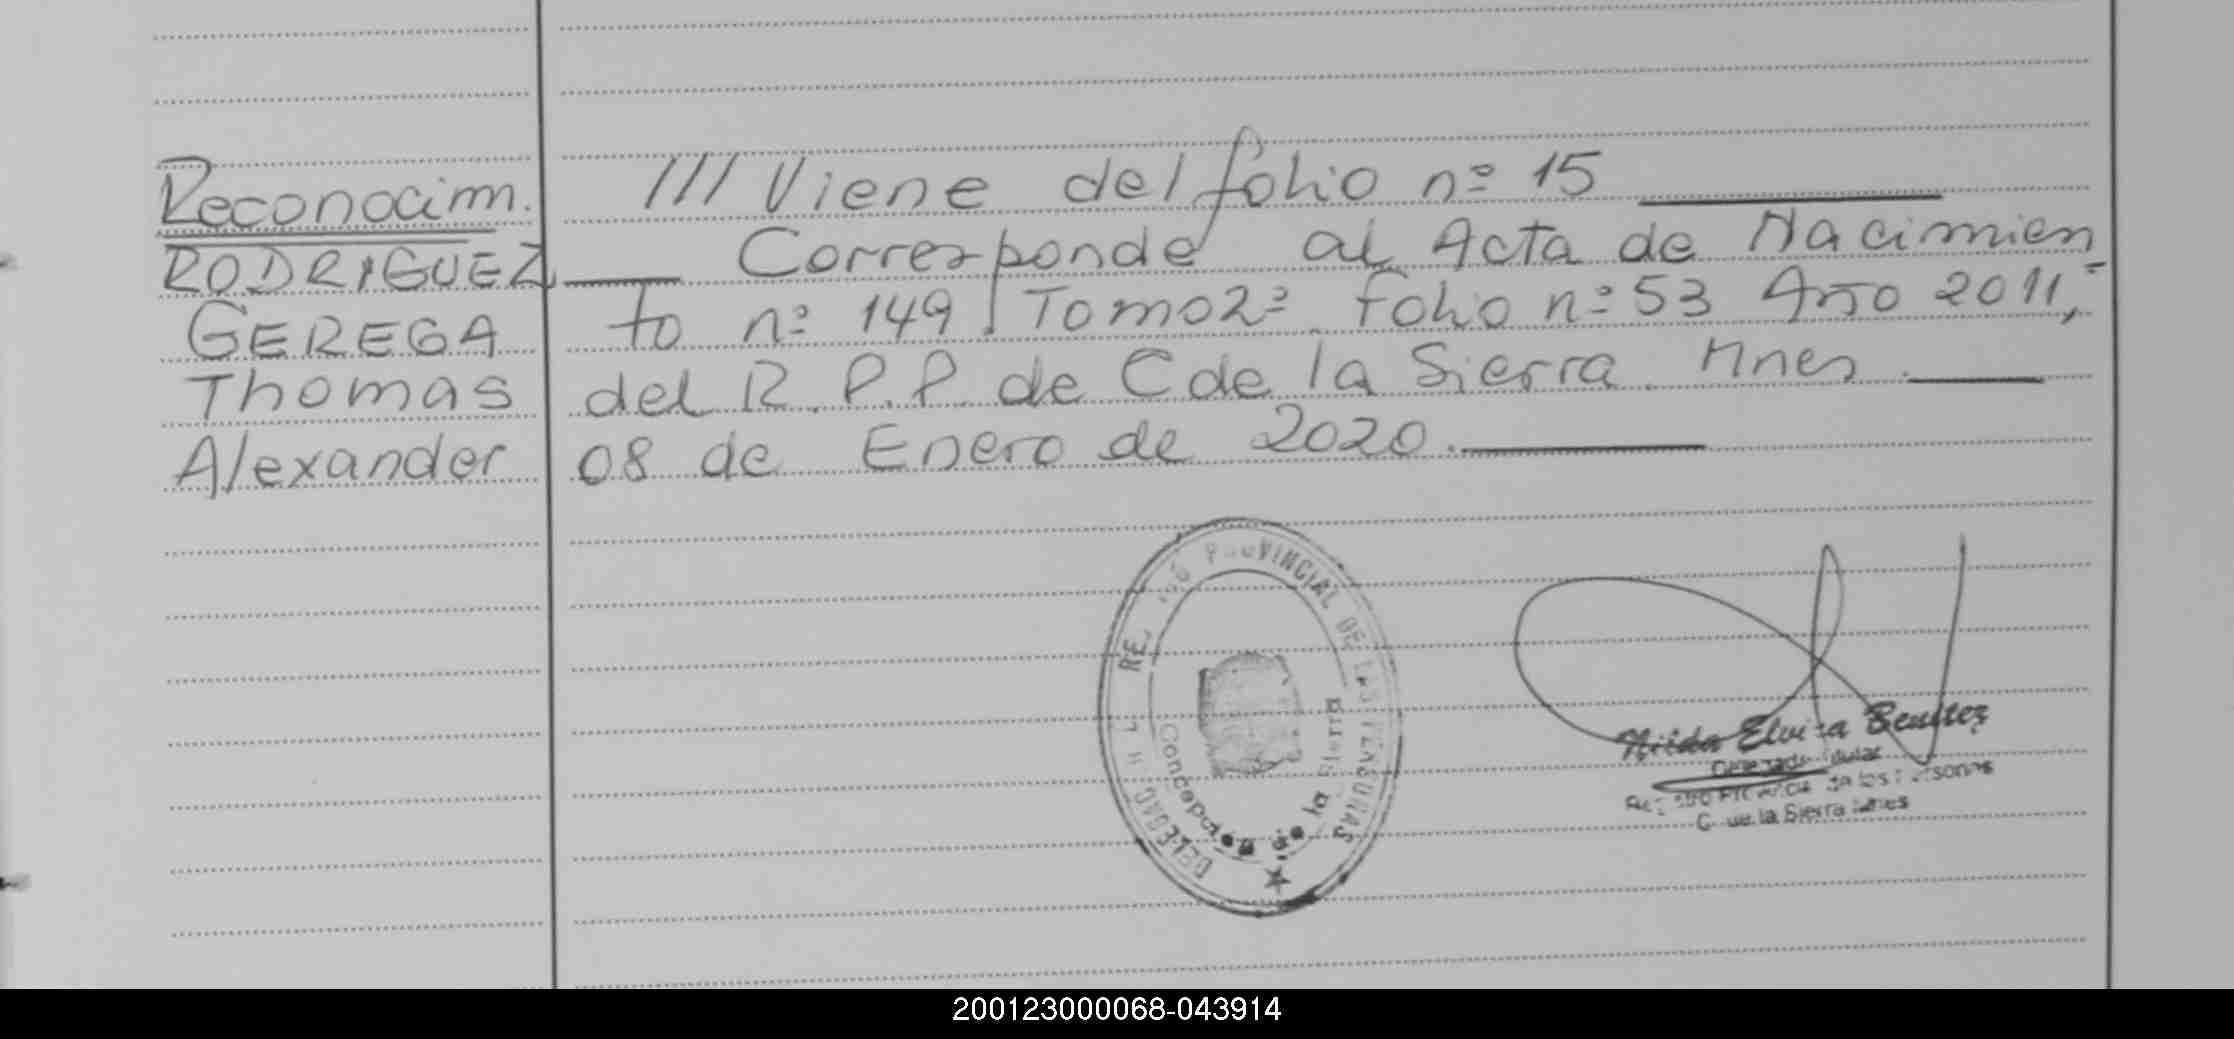 Reconocim.
RODRIGUEZ
GEREGA
Thomas
Alexander
/// Viene del folio nº 15
Corresponde al Acta de Nacimien
to nº 149 Tomo 2º Folio nº 53 Año 2011,
del R.P.P. de C de la Sierra Mnes.
08 de Enero de 2020.
PROVINCIAL DE LAS PERSONAS
Concepción de la Sierra
Nilda Elvira Benitez
Delegada Titular
de las Personas
C. de la Sierra Mnes
200123000068-043914